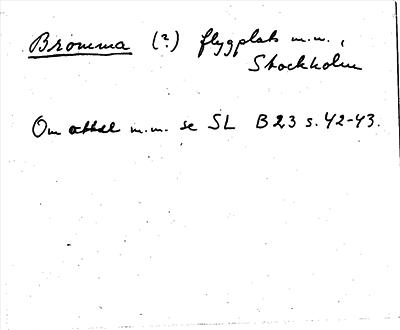 Bromma (?) flygplats m.m.,
Stockholm
Om uttal m.m. se SL B23 s. 42-43.